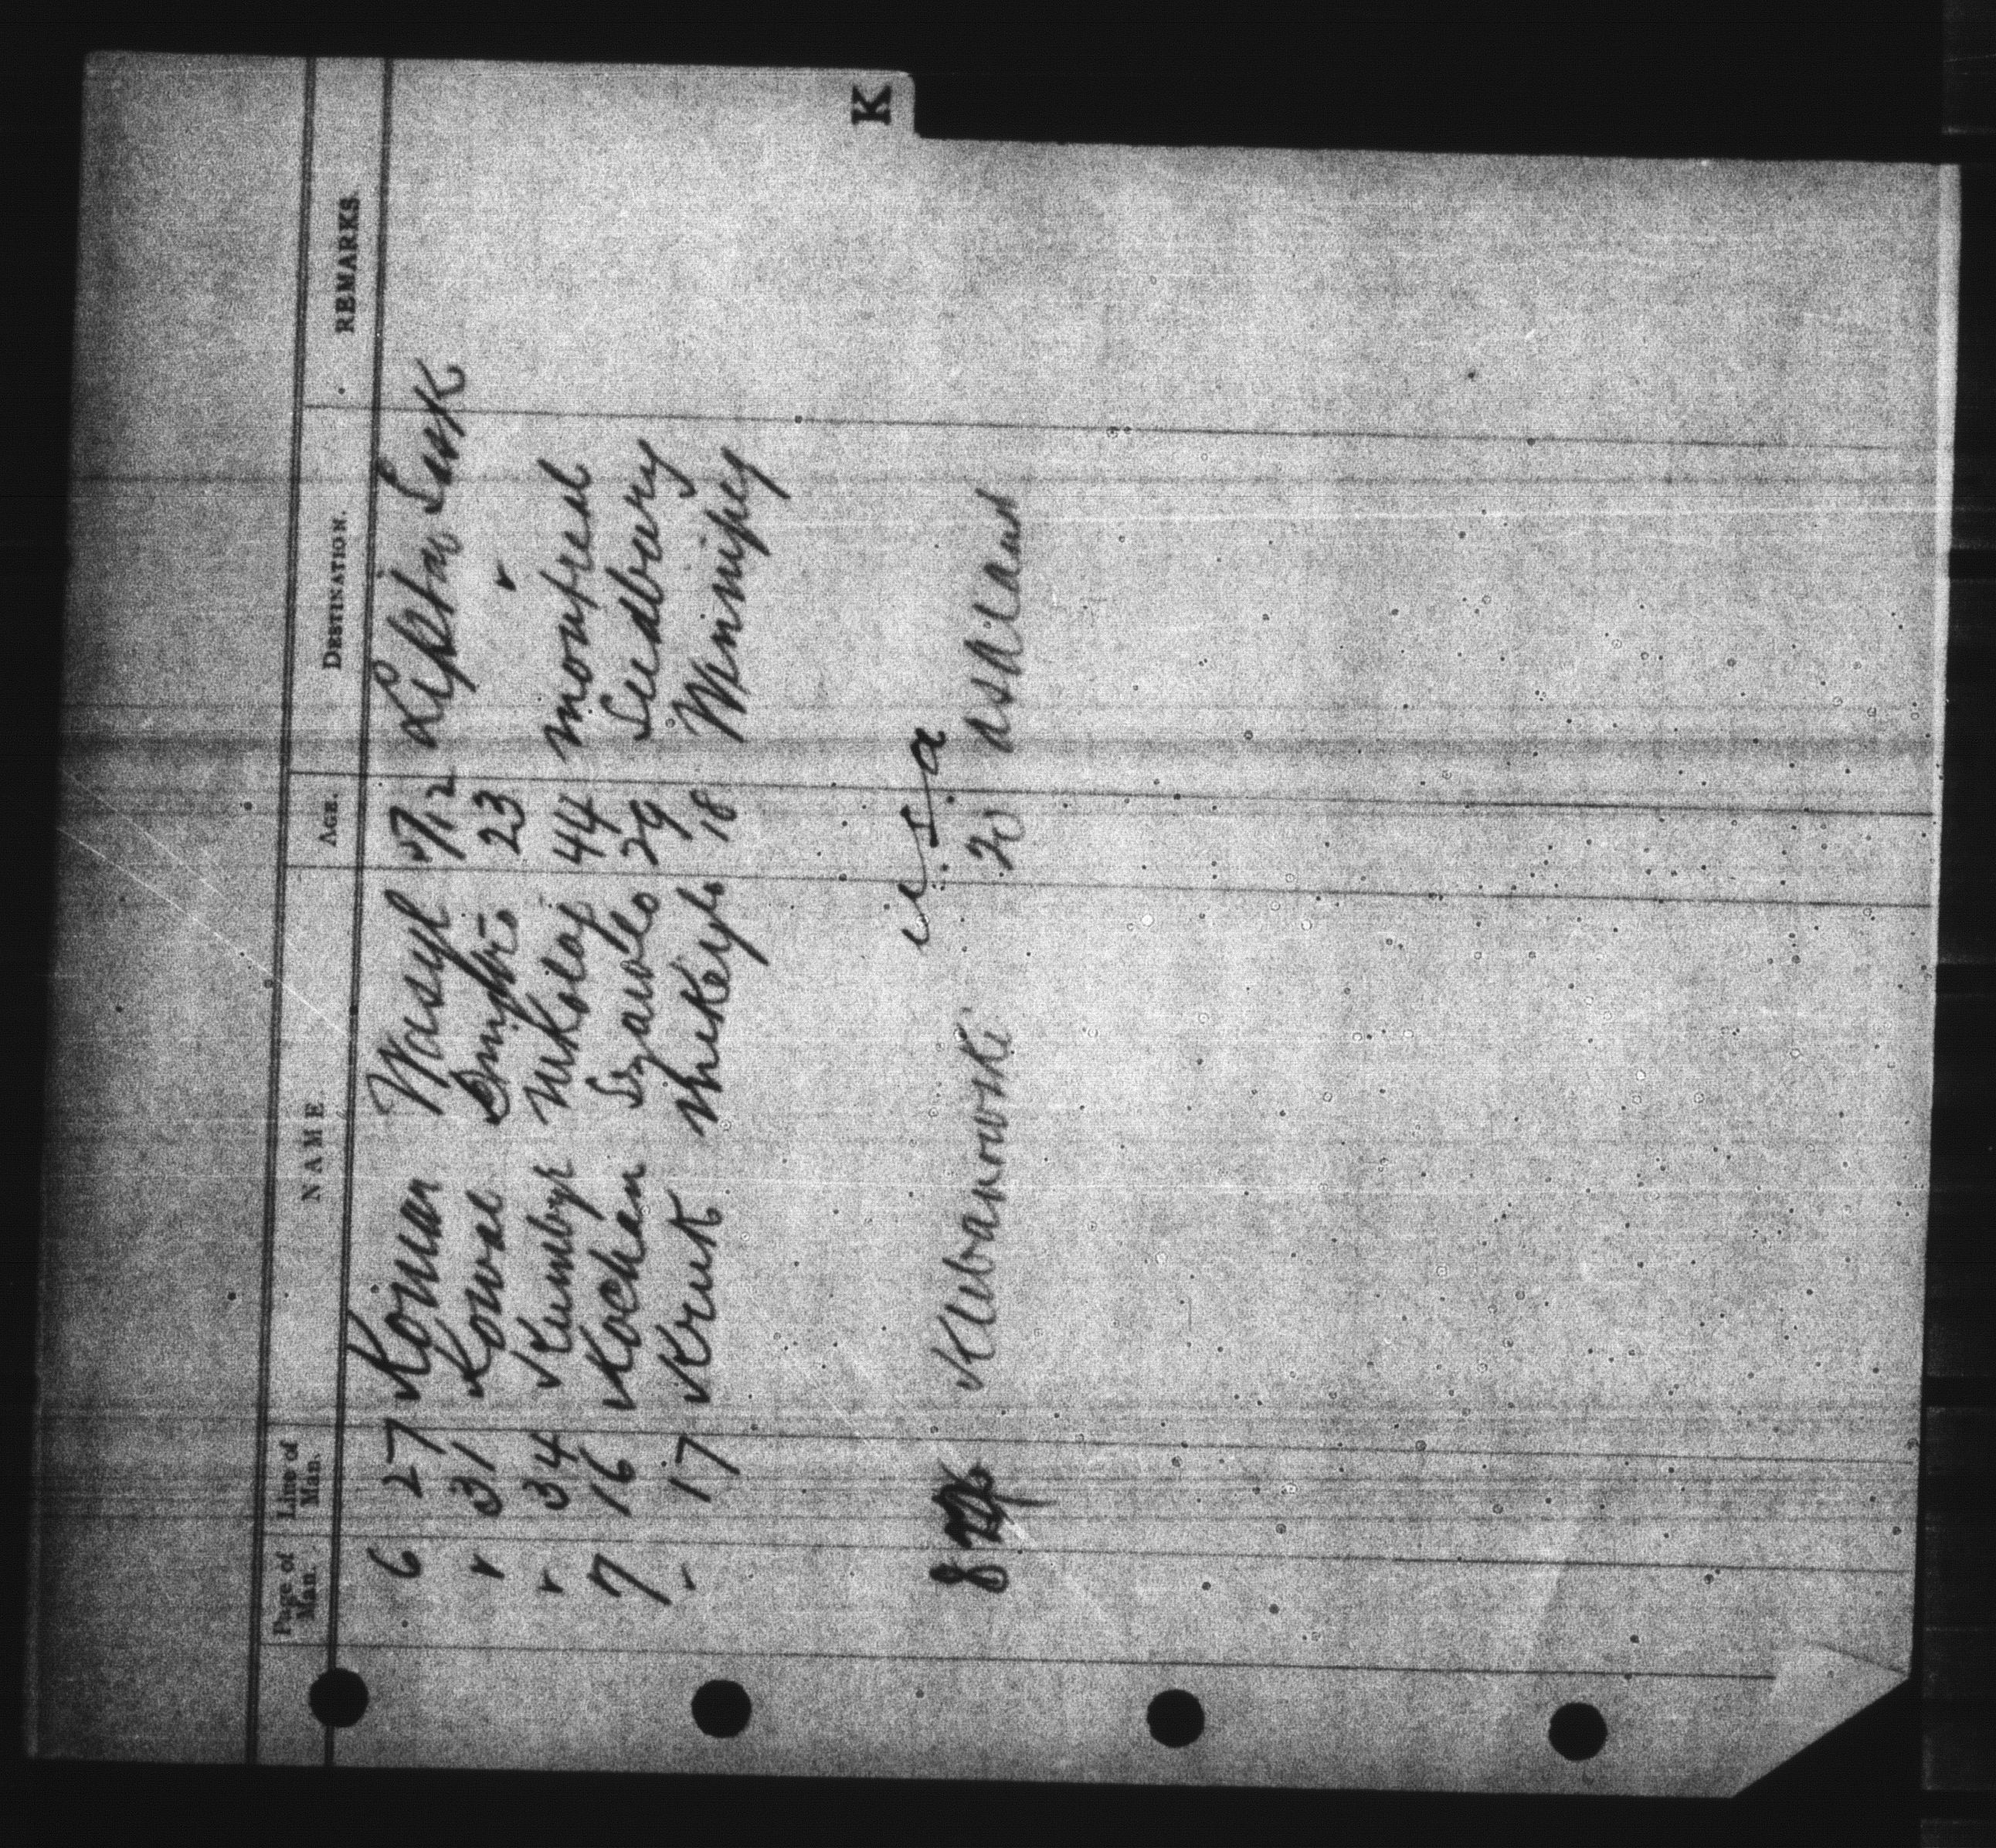 K
Page of Man. Line of Man. NAME. AGE. DESTINATION. REMARKS
6 27 Koman Wasyl Lipton Sask
" 31 Kowal Dmytro 23 "
" 34 Mikolaj 44 Montreal
7 16 Kochan 29 Sudbury
" 17 Kruk Mikeyto 18 Winnipeg
U.S.A
8 Klebanowski 20 Ashland